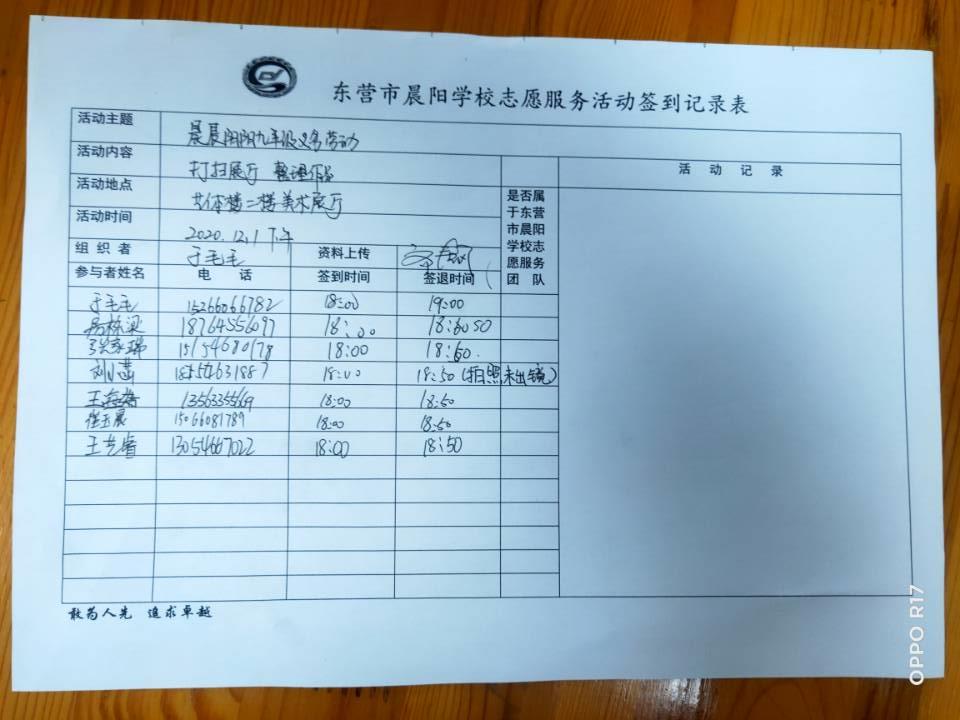 东营市晨阳学校志愿服务活动签到记录表
活动主题 晨晨阳阳九年级义务劳动
活动内容 打扫展厅 整理作品 活动记录
活动地点 艺体楼二楼美术展厅
是否属于东营市晨阳学校志愿服务团队
活动时间 2020.12.1 下午
组织者 于毛毛 资料上传
参与者姓名 电话 签到时间 签退时间
于毛毛 15266066782 18:00 19:00
18764556097 18:00 18:6050
张家瑞 15154680178 18:00 18:50.
刘小菡 18:00 18:50 (拍照未出镜)
王海梅 13563355669 18:00 18:50
崔玉晨 15066081789 18:00 18:50
王艺睿 13054667022 18:00 18:50
敢为人先 追求卓越
OPPO R17